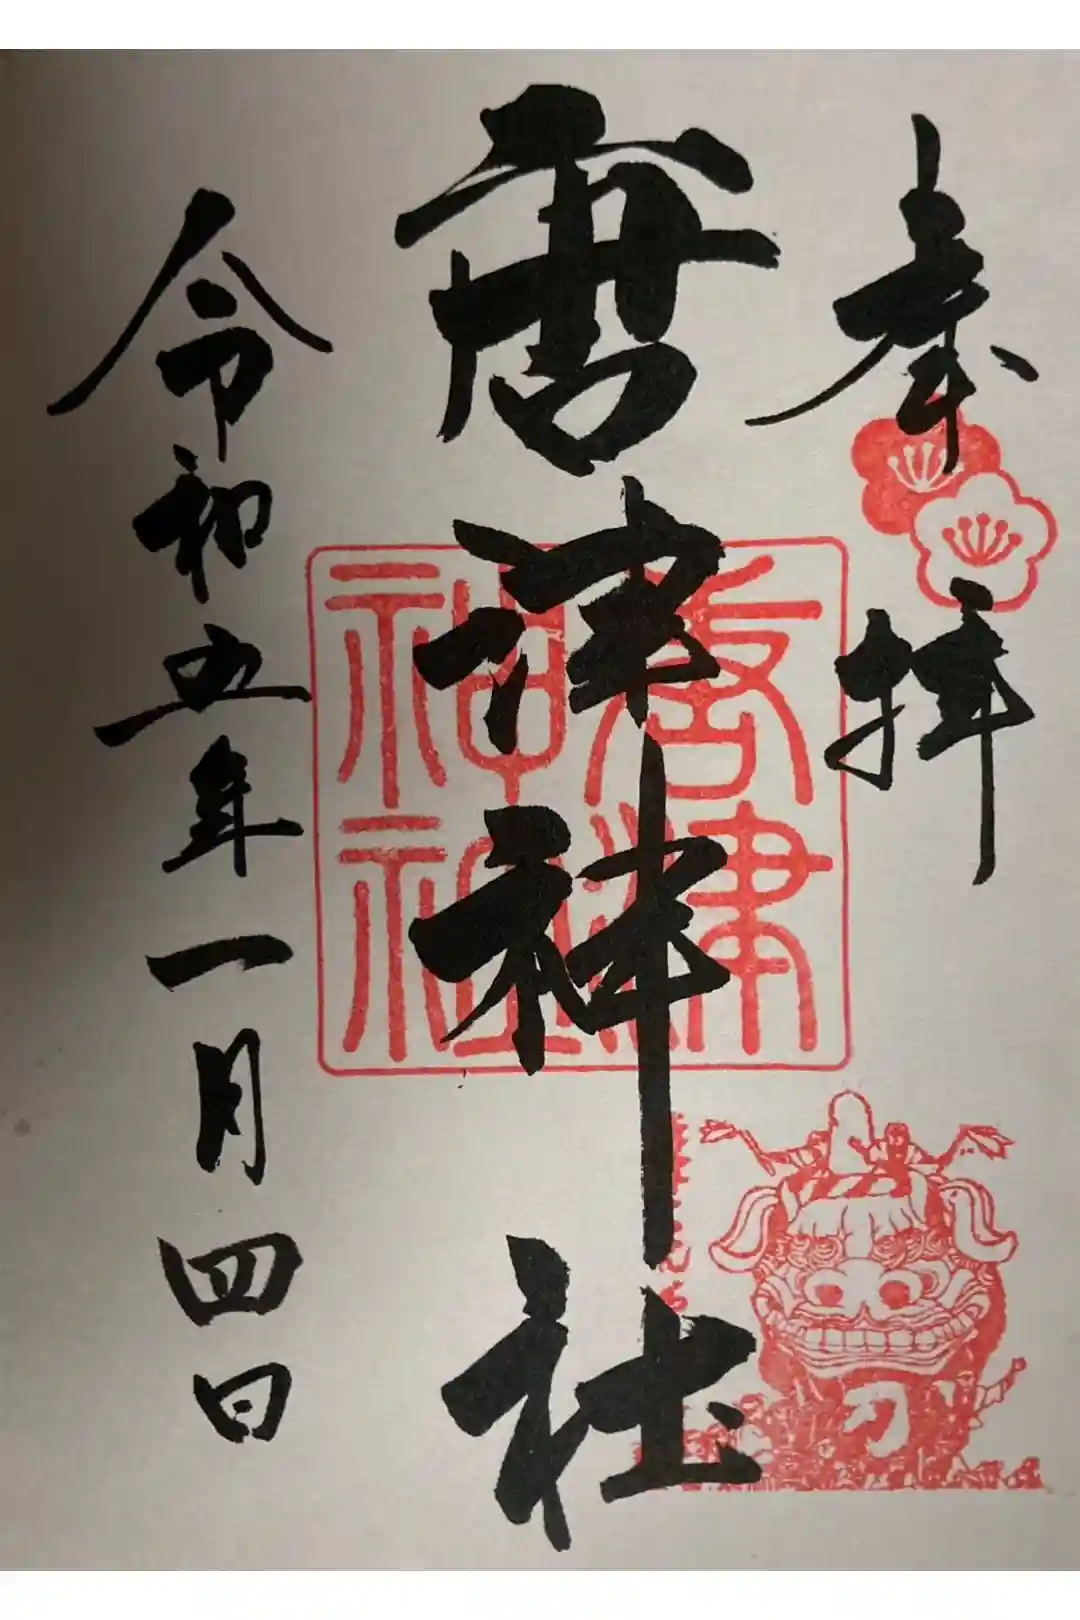 奉拝
唐津神社
唐津
神社
令和五年一月四日